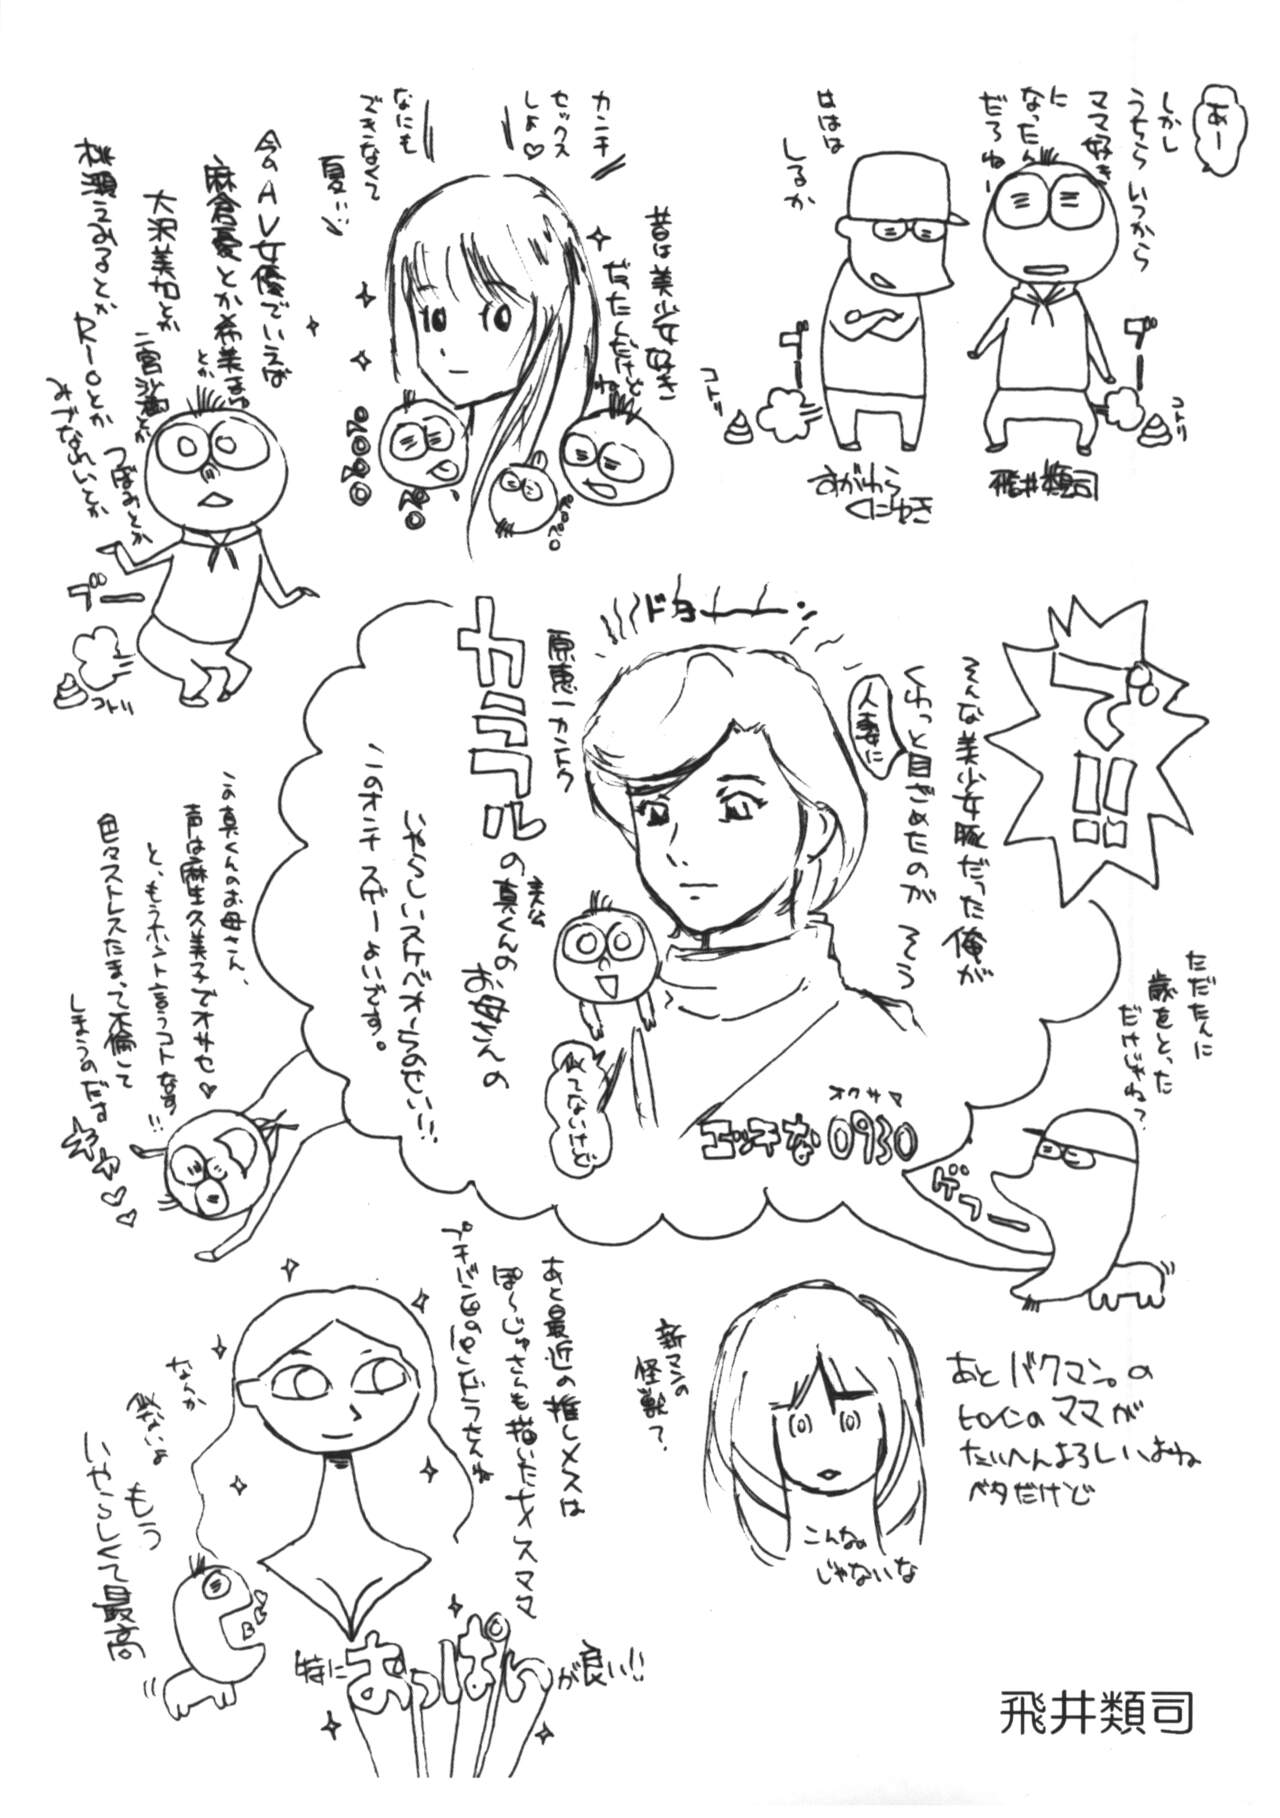 あー
しかし
うちらいつから
ママ好き
に
なったん
だろねー
ははは
しるか
ブー
コトリ
ブー
コトリ
すがわら
くにゆき
飛井類司
カンチ
セックス
しよ♡
なにも
できなくて
夏…
昔は美少女好き
だったんだけど
ね
ペロペロ
今のAV女優でいえば
麻倉憂とか希美まゆ
とか
大沢美加とか
二宮沙樹とか
つぼみとか
桃瀬えみるとか
RIOとか
みづなれいとか
ブー
コトリ
で!!
そんな美少女豚だった俺が
くわっと目ざめたのが そう
人妻に
ドヨーーン
原恵一カントク
カラフル
の真くんの
主人公
お母さんの
いやらしいスケベオーラのせい!!
このオチ スゲーよいです。
似てないけど
オクサマ
エッチな0930
この真くんのお母さん、
声は麻生久美子でオサセ♡
と、もうホント言うコトなす!!
色々ストレスたまって不倫して
しまうのだす
ギャ♡♡
ただたんに
歳をとった
だけじゃね?
ゲフー
あと最近の推しメスは
ぽ〜じゅさんも描いたナメレスママ
なんか
似ないよ
もう
いやらしくて最高
特に
おっぱい
が良い!!
新マンの
怪獣?
こんなの
じゃないな
あとバクマン。の
ヒロインのママが
たいへんよろしいよね
ベタだけど
飛井類司